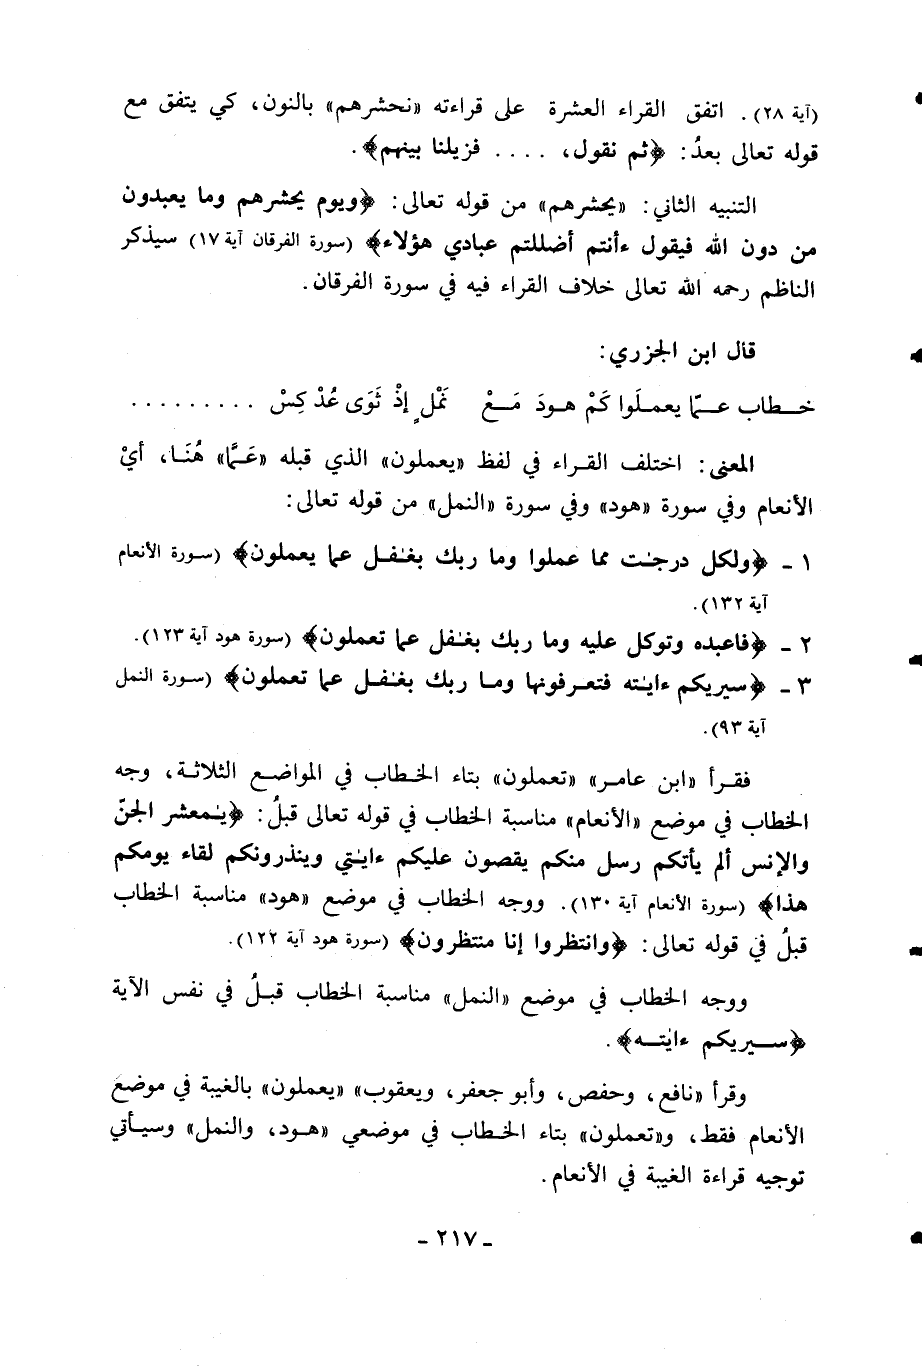 (آية ٢٨). اتفق القراء العشرة على قراءته «نحشرهم» بالنون، كي يتفق مع
قوله تعالى بعدُ: ﴿ثم نقول، .... فزيلنا بينهم﴾.
التنبيه الثاني: «يحشرهم» من قوله تعالى: ﴿ويوم يحشرهم وما يعبدون
من دون الله فيقول ءأنتم أضللتم عبادي هؤلاء﴾ (سورة الفرقان آية ١٧) سيذكر
الناظم رحمه الله تعالى خلاف القراء فيه في سورة الفرقان.
قال ابن الجزري:
خـطاب عـمّا يعملَوا كَمْ هـودَ مَـعْ نَمْلٍ إذْ ثَوَى عُدْ كِسْ .........
المعنى: اختلف القـراء في لفظ «يعملون» الذي قبله «عَـمَّا» هُنَـا، أيْ
الأنعام وفي سورة «هود» وفي سورة «النمل» من قوله تعالى:
١ ـ ﴿ولكل درجـٰت مما عملوا وما ربك بغـٰفـل عما يعملون﴾ (سـورة الأنعام
آية ١٣٢).
٢ ـ ﴿فاعبده وتوكل عليه وما ربك بغـٰفل عما تعملون﴾ (سورة هود آية ١٢٣).
٣ ـ ﴿سيريكم ءايـٰته فتعـرفونها ومـا ربك بغـٰفـل عما تعملون﴾ (سـورة النمل
آية ٩٣).
فقـرأ «ابن عامـر» «تعملون» بتاء الخـطاب في المواضـع الثلاثـة، وجه
الخطاب في موضع «الأنعام» مناسبة الخطاب في قوله تعالى قبلُ: ﴿يـٰمعشر الجنّ
والإنس ألم يأتكم رسل منكم يقصون عليكم ءايـٰتي وينذرونكم لقاء يومكم
هذا﴾ (سورة الأنعام آية ١٣٠). ووجه الخطاب في موضع «هود» مناسبة الخطاب
قبلُ في قوله تعالى: ﴿وانتظروا إنا منتظرون﴾ (سورة هود آية ١٢٢).
ووجه الخطاب في موضع «النمل» مناسبة الخطاب قبـلُ في نفس الآية
﴿سـيريكم ءايـٰتـه﴾.
وقرأ «نافع، وحفص، وأبو جعفر، ويعقوب» «يعملون» بالغيبة في موضع
الأنعام فقط، و«تعملون» بتاء الخـطاب في موضعي «هـود، والنمل» وسيـأتي
توجيه قراءة الغيبة في الأنعام.
ـ ٢١٧ ـ